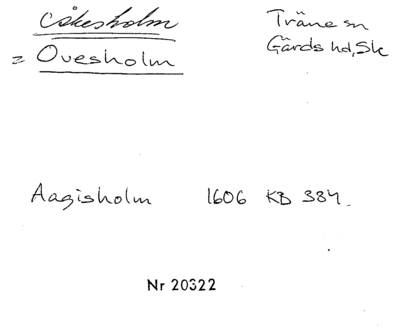 Åkesholm
= Ovesholm
Träne sn
Gärds hd, Sk
Aagisholm 1606 KB 384.
Nr 20322